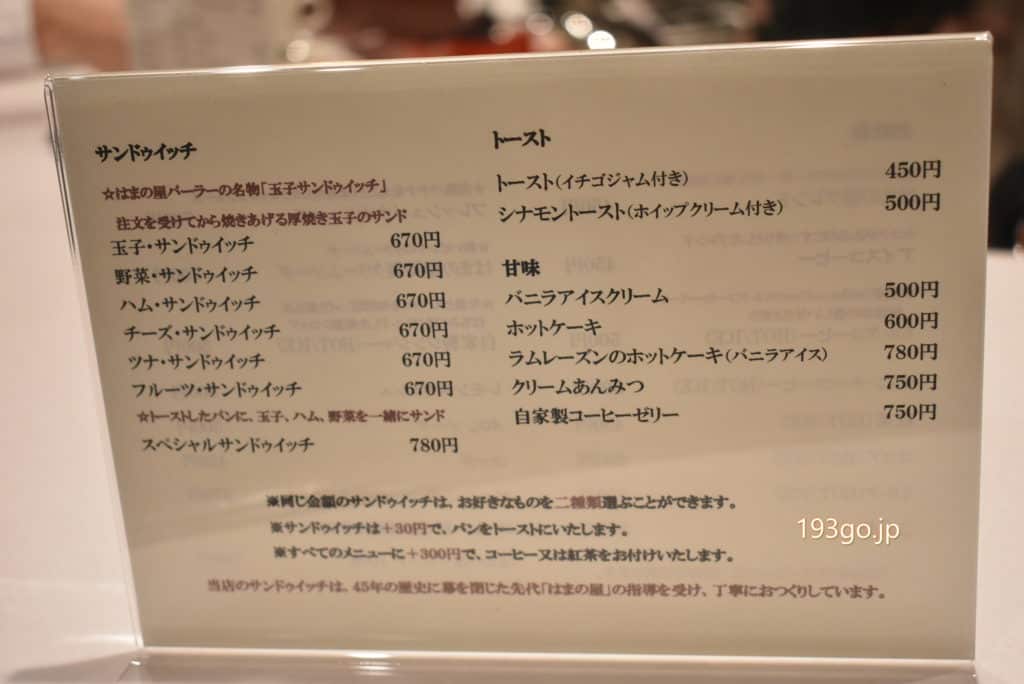 サンドゥイッチ
☆はまの屋パーラーの名物「玉子サンドゥイッチ」
注文を受けてから焼きあげる厚焼き玉子のサンド
玉子・サンドゥイッチ 670円
野菜・サンドゥイッチ 670円
ハム・サンドゥイッチ 670円
チーズ・サンドゥイッチ 670円
ツナ・サンドゥイッチ 670円
フルーツ・サンドゥイッチ 670円
☆トーストしたパンに、玉子、ハム、野菜を一緒にサンド
スペシャルサンドゥイッチ 780円
トースト
トースト(イチゴジャム付き) 450円
シナモントースト(ホイップクリーム付き) 500円
甘味
バニラアイスクリーム 500円
ホットケーキ 600円
ラムレーズンのホットケーキ(バニラアイス) 780円
クリームあんみつ 750円
自家製コーヒーゼリー 750円
※同じ金額のサンドゥイッチは、お好きなものを二種類選ぶことができます。
※サンドゥイッチは+30円で、パンをトーストにいたします。
※すべてのメニューに+300円で、コーヒー又は紅茶をお付けいたします。
当店のサンドゥイッチは、45年の歴史に幕を閉じた先代「はまの屋」の指導を受け、丁寧におつくりしています。
193go.jp